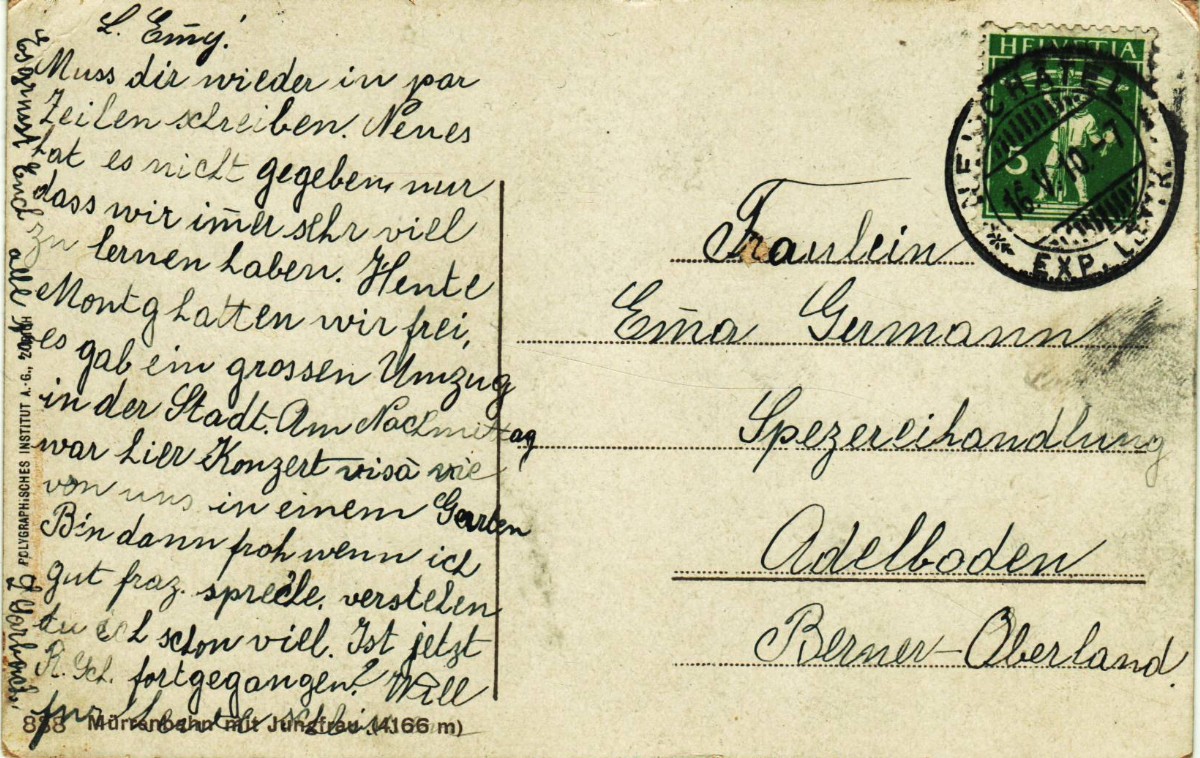 L. Em̄y!
Muss dir wieder in par
Zeilen schreiben. Neues
hat es nicht gegeben, nur
dass wir im̄er sehr viel
zu lernen haben. Heute
Montg hatten wir frei,
es gab ein grossen Umzug
in der Stadt. Am Nachmittag
war hier Konzert visà vie
von uns in einem Garten
Bin dann froh wenn ich
gut fraz. spreche. verstehen
tu ich schon viel. Ist jetzt
R. Gch. fortgegangen? Will
für heute
Es grüsst Euch all
HELVETIA
5
NEUCHATEL
16.V.10.-7
EXP. LETTR.
Fraulein
Em̄a Germann
Spezereihandlung
Adelboden
Berner-Oberland.
POLYGRAPHISCHES INSTITUT A.-G., ZÜRICH
888 Mürrenbahn mit Jungfrau (4166 m)